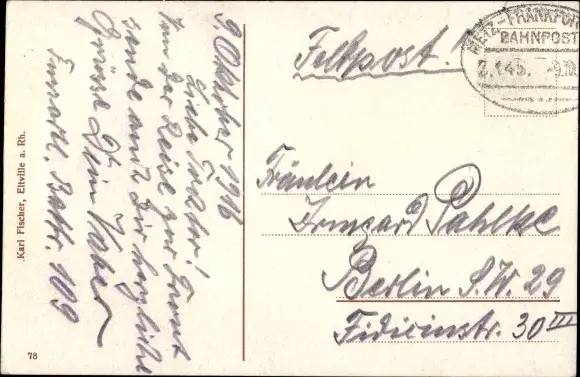 9. Oktober 1916
Liebe Tochter!
Von der Reise zur Front
sende auch Dir herzliche
Grüsse Dein Vater
Fussartl. Battr. 109
Karl Fischer, Eltville a. Rh.
78
Feldpost.
METZ-FRANKFUR
BAHNPOST
Fräulein
Irmgard Pahlke
Berlin S.W. 29
Fidicinstr. 30 III